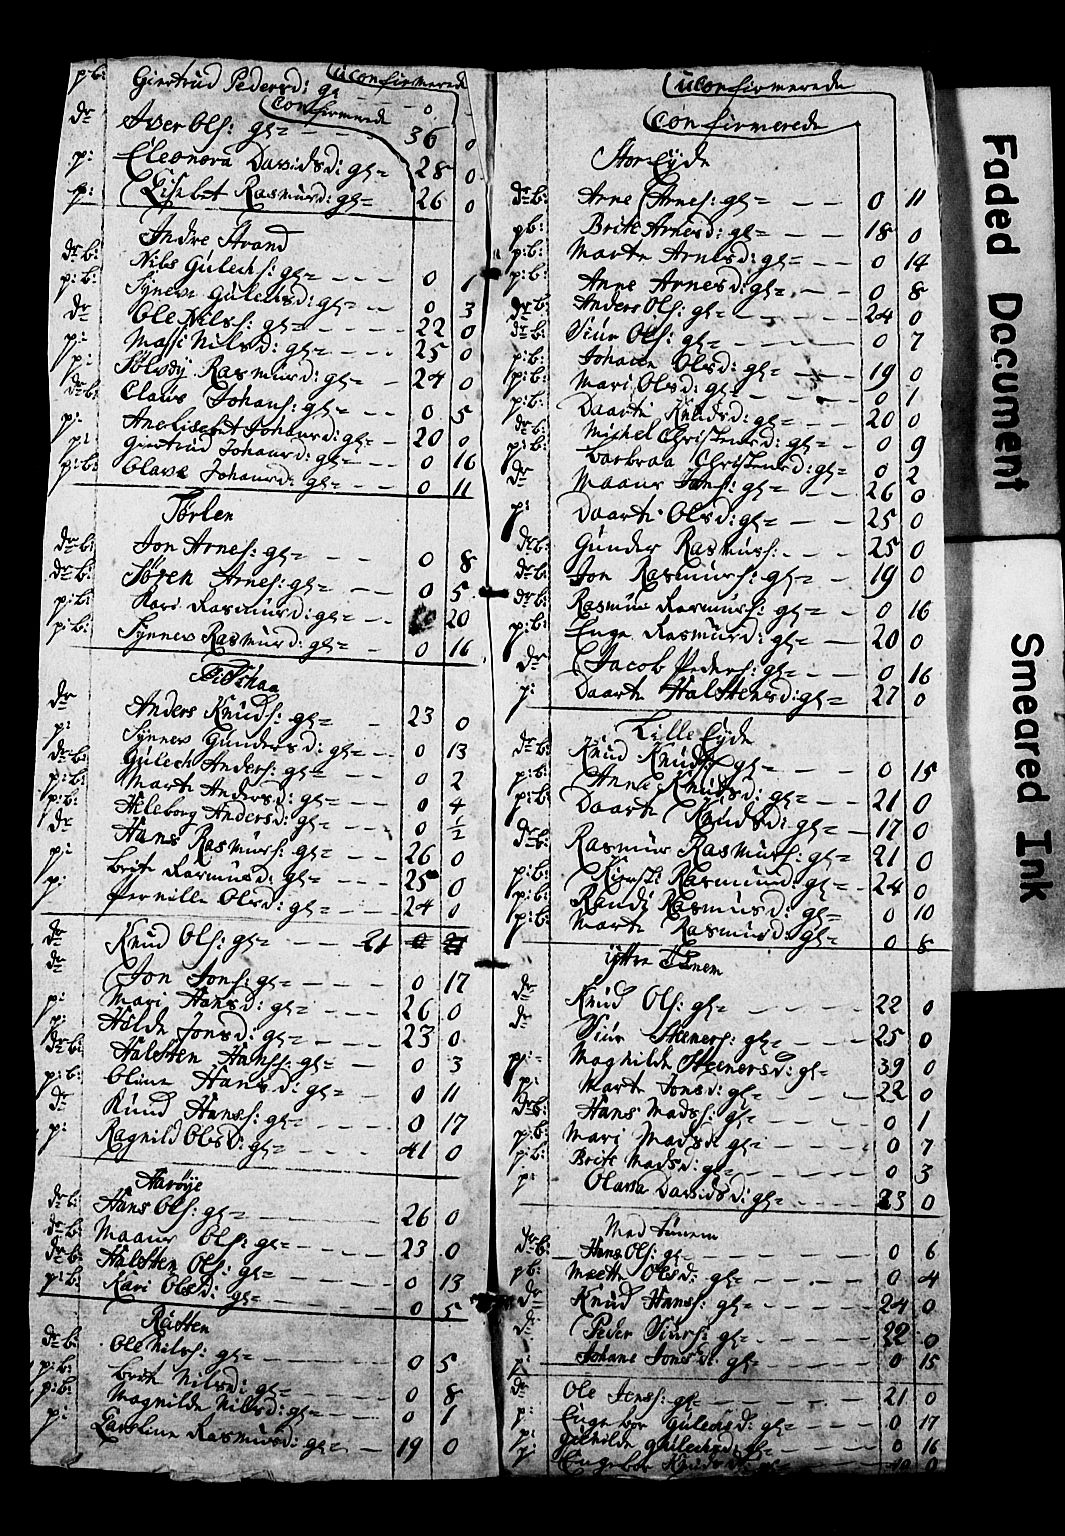 uConfirmerede
p:b: Giertrud Pedersd: gl
Confirmerede
dr Iver Ols: gl= – – – 36 0
p: Eleonora Davidsd: gl= 28 0
p: Lisbet Rasmusd: gl= 26 0
Indre Strand
dr:b: Nils Gulechs: gl= – – – 0 1
p:b: Synneve Gulechsd: gl= – – – 0 3
dr Ole Nilss: gl= – – – 22 0
p: Masi Nilsd: gl= – – – 25 0
p: Rasmusd: gl= – 24 0
dr:b: Claus Johans: gl= – – 0 5
p: Anelisabet Johansd: gl= – 20 0
p: Giertrud Johansd: gl= – – 0 16
p:b: Olave Johansd: gl= – – 0 11
Tørlen
dr:b: Jon Arnes: gl= – – 0 8
dr:b: Søren Arnes: gl= – – 0 5
p:b: Kari Rasmusd: gl= – – 20
p:b: Synnev Rasmusd: gl= – – 0 16
dr Anders Knuds: gl= – 23 0
p: Synnev Gundersd: gl= – – 0 13
dr:b: Gulech Anders: gl= – – – 0 2
p:b: Marte Andersd: gl= – – – 0 4
p:b: Elleborg Andersd: gl= – – 0 1/2
dr Hans Rasmuss: gl= – – – 26 0
p: Brite Rasmusd: gl= – – – 25 0
p: Pernille Olsd: gl= – – – 24 0
dr Knud Ols: gl= – – – 21 0 21
dr Jon Jons: gl= – – – 0 17
p: Mari Hansd: gl= – – – 26 0
p: Hilde Jonsd: gl= – – – 23 0
dr:b: Halsten Hanss: gl= – – 0 3
p:b: Oline Hansd: gl= – – 0 11
dr Knud Hanss: gl= – – – 0 17
p: Ragnild Olsd: gl= – – – 41 0
Harøye
dr:b: Hans Ols: gl= – – – 26 0
dr:b: Maans Ols: gl= – – – 23 0
dr:b: Halsten Ols: gl= – – – 0 13
p:b: Kari Olsd: gl= – – – 0 5
Røsten
dr:b: Ole Nilss: gl= – – – 0 5
p:b: Brite Nilsd: gl= – – – 0 8
p:b: Magnilde Nilsd: gl= – – – 0 1
p: Caroline Rasmusd: gl= – – 19 0
uConfirmerede
Confirmerede
Stor Eyde
dr:b: Arne Arnes: gl= – – 0 11
p:b: Brite Arnesd: gl= – – – 18 0
p:b: Marte Arnesd: gl= – – – 0 14
p:b: Anne Arnesd: gl= – – – 0 8
dr:b: Anders Ols: gl= – – – 24 0
dr:b: Siur Ols: gl= – – – 0 7
p:b: Johane Olsd: gl= – – – 19 0
p:b: Mari Olsd: gl= – – – 0 1
p:b: Daarte Knudsd: gl= – – 20 0
dr:b: Michel Christens: gl= – – 0 9
p:b: Barbraa Christensd: gl= 0 2
dr Maans Jons: gl= – – – 26 0
p: Daarte Olsd: gl= – – – 25 0
dr:b: Gunder Rasmuss: – – – 25 0
dr:b: Jon Rasmuss: gl= – 19 0
dr:b: Rasmus Rasmuss: gl= – 0 16
p:b: Enge Rasmusd: gl= – – 20 0
dr Jacob Peders: gl= – – 0 16
p: Daarte Halstensd: gl= – 27 0
Lille Eyde
dr:b: Knud Knuds: gl= – – – 0 15
p:b: Anne Knudsd: gl= – – – 21 0
p:b: Daarte Knudsd: gl= – – 17 0
dr:b: Rasmus Rasmuss: gl= – 21 0
p:b: Kirsti Rasmusd: gl= – 24 0
p:b: Randi Rasmusd: gl= – 0 10
p:b: Marte Rasmusd: gl= 0 8
dr Knud Ols: gl= – – – 22 0
dr Siur Steeners: gl= – – 25 0
p: Magnilde Steenersd: gl= 39 0
p: Marte Jonsd: gl= – – – 22 0
dr:b: Hans Madss: gl= – – – 0 1
p:b: Mari Madsd: gl= – – – 0 7
p:b: Brite Madsd: gl= – – – 0 3
p: Olava Davidsd: gl= – – – 23 0
dr:b: Hans Ols: gl= – – – 0 6
p:b: Mette Olsd: gl= – – – 0 4
dr Knud Hanss: gl= – – – 24 0
dr Peder Siurs: gl= – – – 22 0
p: Johane Jonsd: gl= – – – 0 15
dr Ole Jonss: gl= – – – 21 0
p: Engebor Gulechsd: gl= – – – 0 17
p: Gunilde Gulechsd: gl= – – – 0 16
p: Engebor Knudsd: gl= 0
Faded Document
Smeared Ink